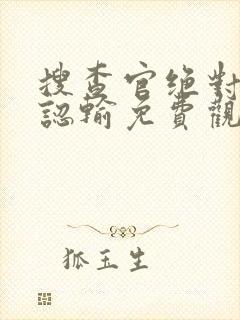 搜查官绝對
認輸免費觀
狐玉生